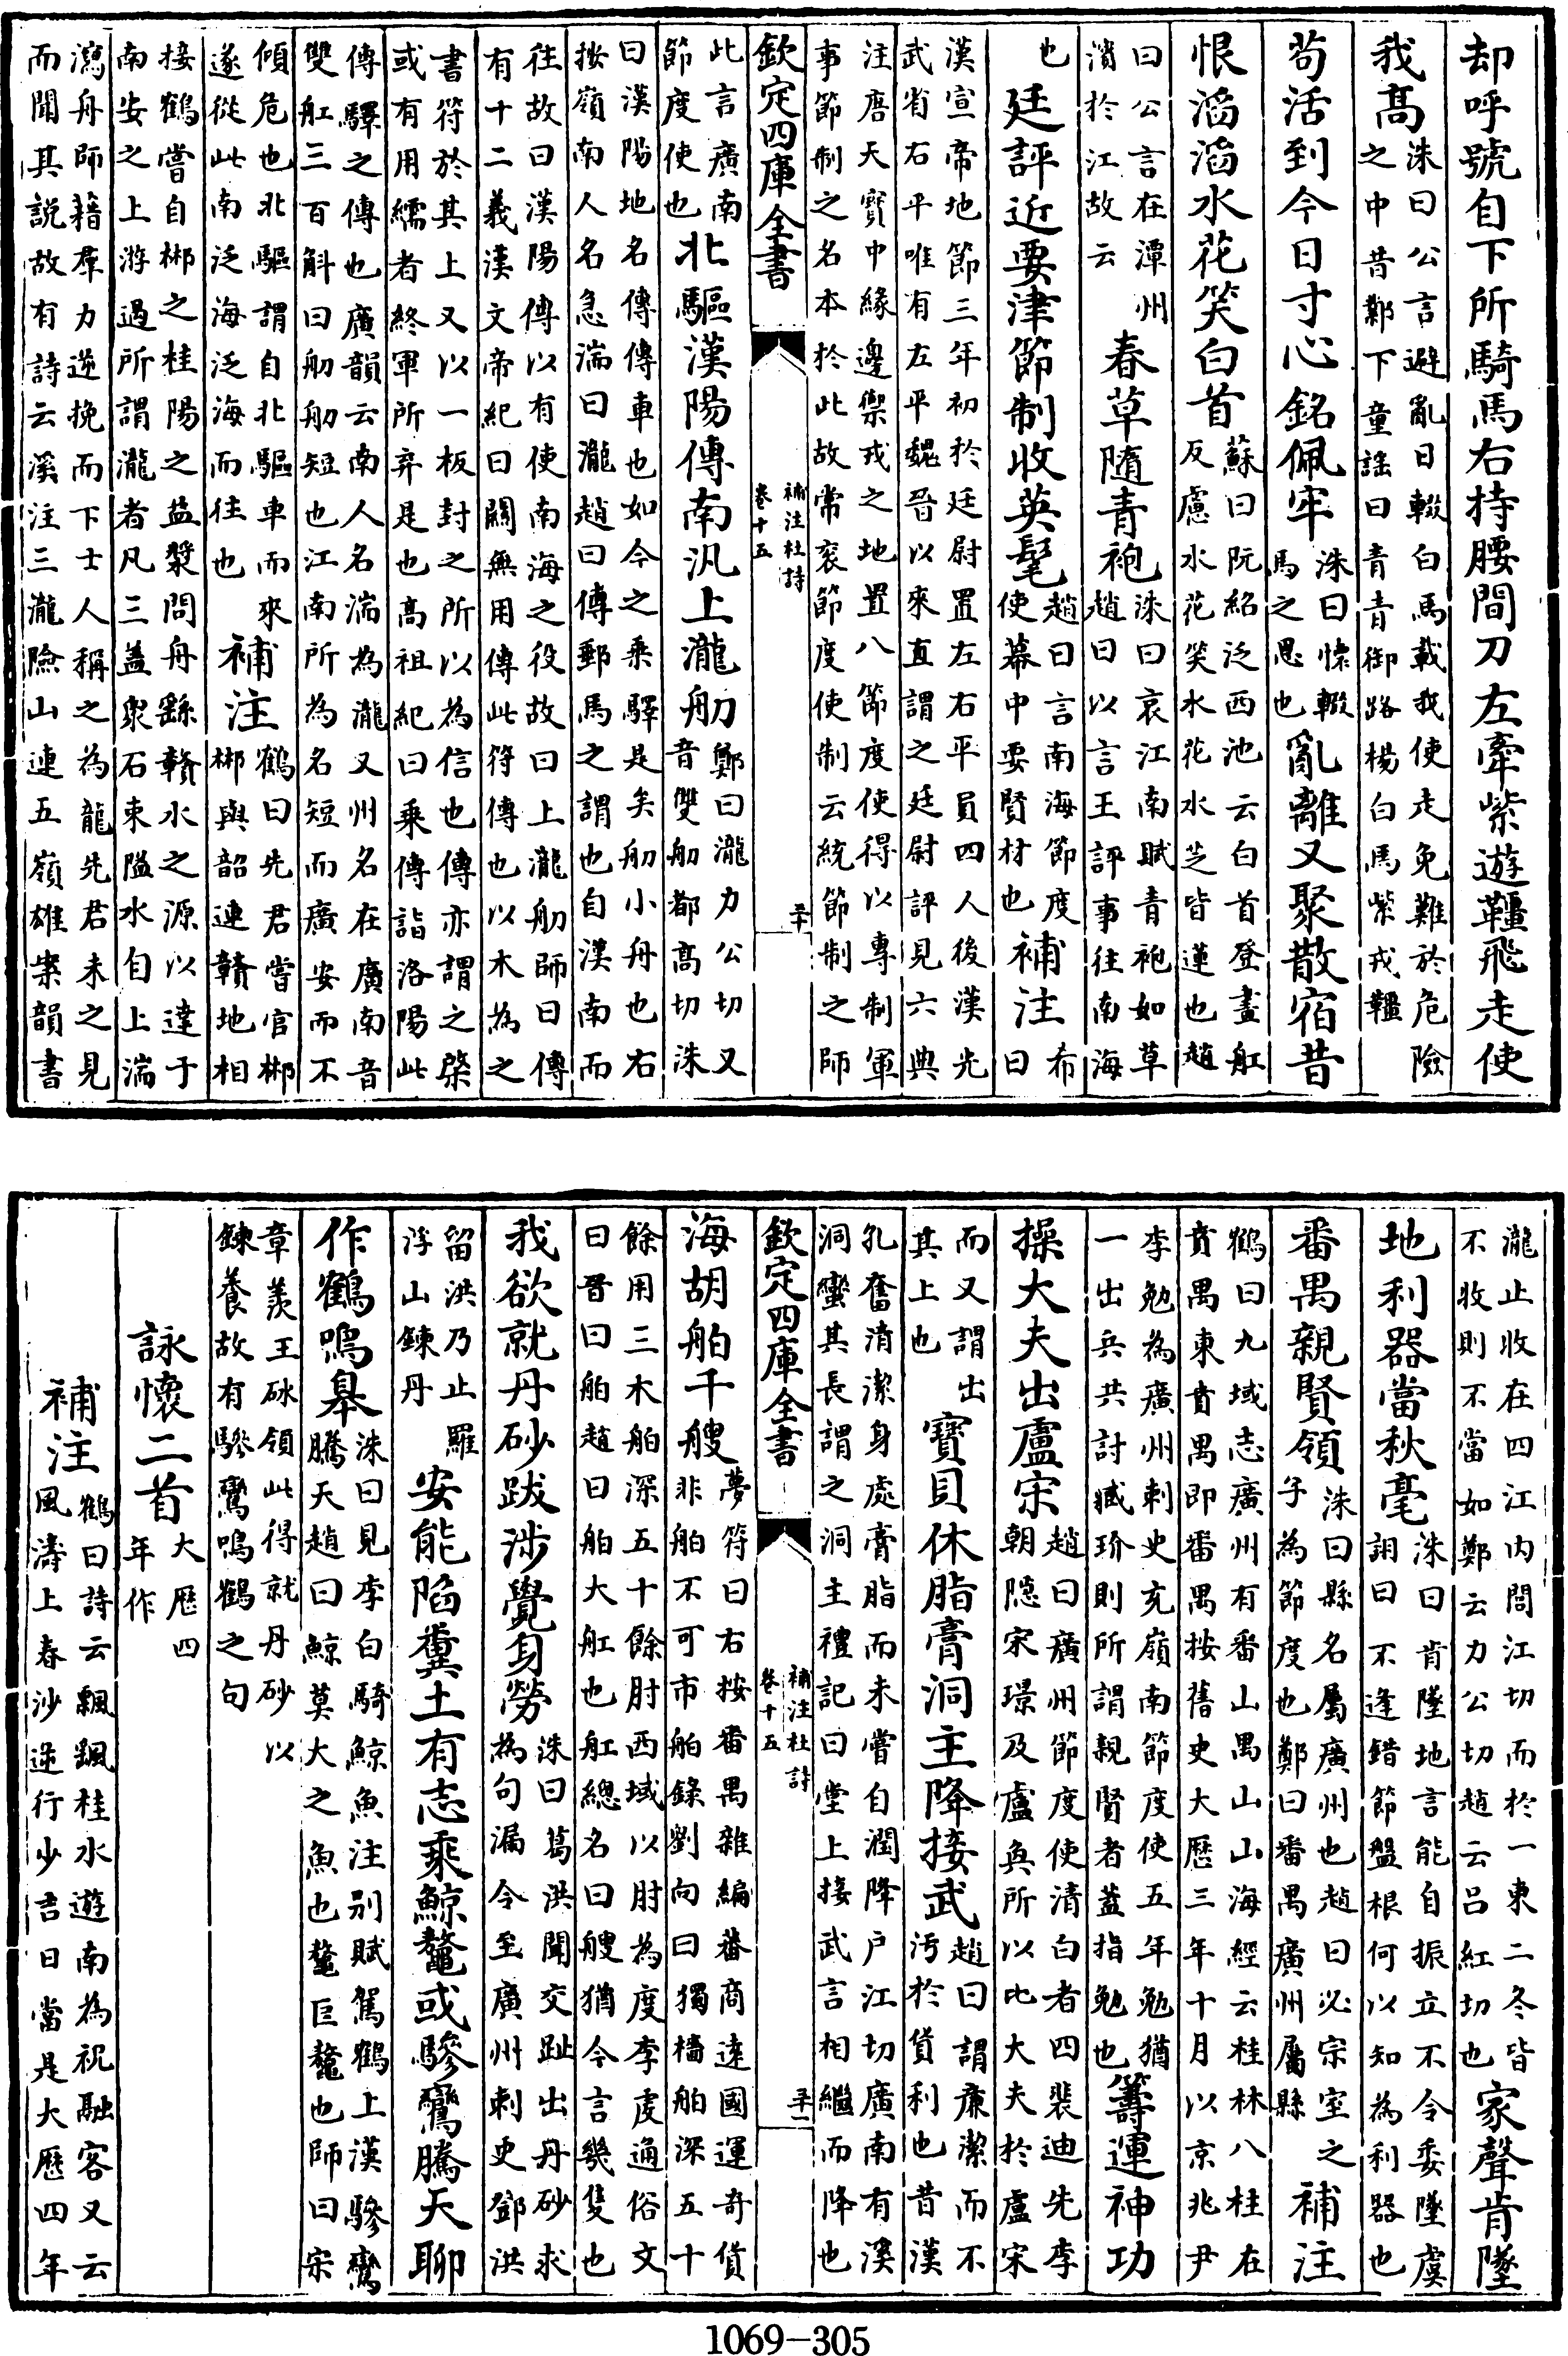 却呼號自下所騎馬右持腰間刀左牽紫遊韁飛走使
我高洙曰公言避亂日輟白馬載我使走免難於危險之中昔鄴下童謠曰青青御路楊白馬紫戎韁
苟活到今日寸心銘佩牢洙曰懷輟馬之恩也亂離又聚散宿昔
恨滔滔水花笑白首蘇曰阮紹泛西池云白首登畫舡反慮水花笑水花水芝皆蓮也趙
曰公言在潭州濱於江故云春草隨青袍洙曰哀江南賦青袍如草趙曰以言王評事往南海
也廷評近要津節制收英髦趙曰言南海節度使幕中要賢材也補注希曰
漢宣帝地節三年初於廷尉置左右平員四人後漢光武省右平唯有左平魏晉以來直謂之廷尉評見六典
注唐天寶中緣邊禦戎之地置八節度使得以專制軍事節制之名本於此故常衮節度使制云統節制之師
欽定四庫全書 補注杜詩 卷十五 三十
此言廣南節度使也北驅漢陽傳南汎上瀧舠鄭曰瀧力公切又音雙舠都高切洙
曰漢陽地名傳傳車也如今之乘驛是矣舠小舟也右按嶺南人名急湍曰瀧趙曰傳郵馬之謂也自漢南而
往故曰漢陽傳以有使南海之役故曰上瀧舠師曰傳有十二義漢文帝紀曰關無用傳此符傳也以木為之
書符於其上又以一板封之所以為信也傳亦謂之棨或有用繻者終軍所弃是也高祖紀曰乘傳詣洛陽此
傳驛之傳也廣韻云南人名湍為瀧又州名在廣南音雙舡三百斛曰舠舠短也江南所為名短而廣安而不
傾危也北驅謂自北驅車而來遂從此南泛海泛海而往也補注鶴曰先君嘗官郴郴與韶連贛地相
接鶴嘗自郴之桂陽之益漿問舟繇贛水之源以達于南安之上游過所謂瀧者凡三盖衆石束隘水自上湍
瀉舟師藉羣力逆挽而下士人稱之為龍先君未之見而聞其説故有詩云溪注三瀧險山連五嶺雄案韻書
瀧止收在四江内閭江切而於一東二冬皆不收則不當如鄭云力公切趙云吕紅切也家聲肯墜
地利器當秋毫洙曰肯墜地言能自振立不令委墜虞詡曰不逢錯節盤根何以知為利器也
番禺親賢領洙曰縣名屬廣州也趙曰必宗室之子為節度也鄭曰番禺廣州屬縣補注
鶴曰九域志廣州有番山禺山山海經云桂林八桂在賁禺東賁禺即番禺按舊史大厯三年十月以京兆尹
李勉為廣州刺史充嶺南節度使五年勉猶一出兵共討臧玠則所謂親賢者蓋指勉也籌運神功
操大夫出盧宋趙曰廣州節度使清白者四裴迪先李朝隱宋璟及盧奐所以比大夫於盧宋
而又謂出其上也寶貝休脂膏洞主降接武趙曰謂廉潔而不汚於貨利也昔漢
孔奮清潔身處膏脂而未嘗自潤降户江切廣南有溪洞蠻其長謂之洞主禮記曰堂上接武言相繼而降也
欽定四庫全書 補注杜詩 卷十五 三十一
海胡舶千艘夢符曰右按番禺雜編蕃商逺國運奇貨非舶不可市舶錄劉向曰獨檣舶深五十
餘用三木舶深五十餘肘西域以肘為度李虔通俗文曰晉曰舶趙曰舶大舡也舡總名曰艘猶今言幾隻也
我欲就丹砂跋涉覺身勞洙曰葛洪聞交趾出丹砂求為句漏令至廣州刺史鄧洪
留洪乃止羅浮山鍊丹安能陷糞土有志乘鯨鼇或驂鸞騰天聊
作鶴鳴臯洙曰見李白騎鯨魚注别賦駕鶴上漢驂鸞騰天趙曰鯨莫大之魚也鼇巨鼇也師曰宋
章羨王砅領此得就丹砂以鍊養故有驂鸞鳴鶴之句
詠懷二首大厯四年作
補注鶴曰詩云飄飄桂水遊南為祝融客又云風濤上春沙逆行少吉日當是大厯四年
1069-305